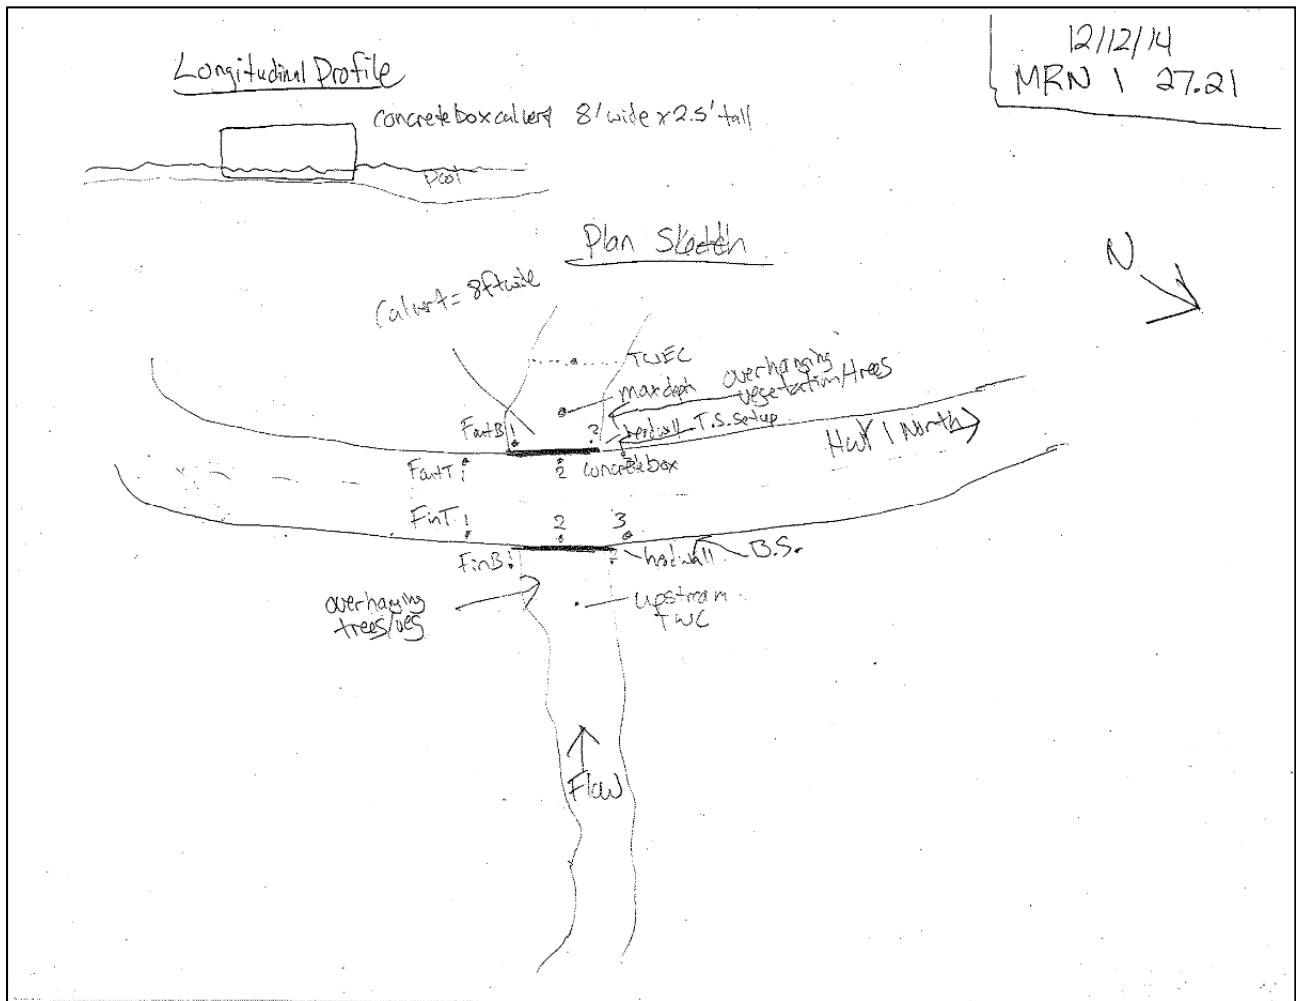 12/12/14
MRN 1 27.21
Longitudinal Profile
concrete box calvert 8' wide x 2.5' tall
Pool
Plan Sketch
N
Calvert = 8ft wide
TWEC
max depth
overhanging
vegetation/trees
FoutB 1
2
headwall
T.S. setup
Hwy 1 North
FoutT 1
2
3
concrete box
FinT 1
2
3
FinB 1
2
headwall
B.S.
overhanging
trees/veg
upstream
TWC
Flow